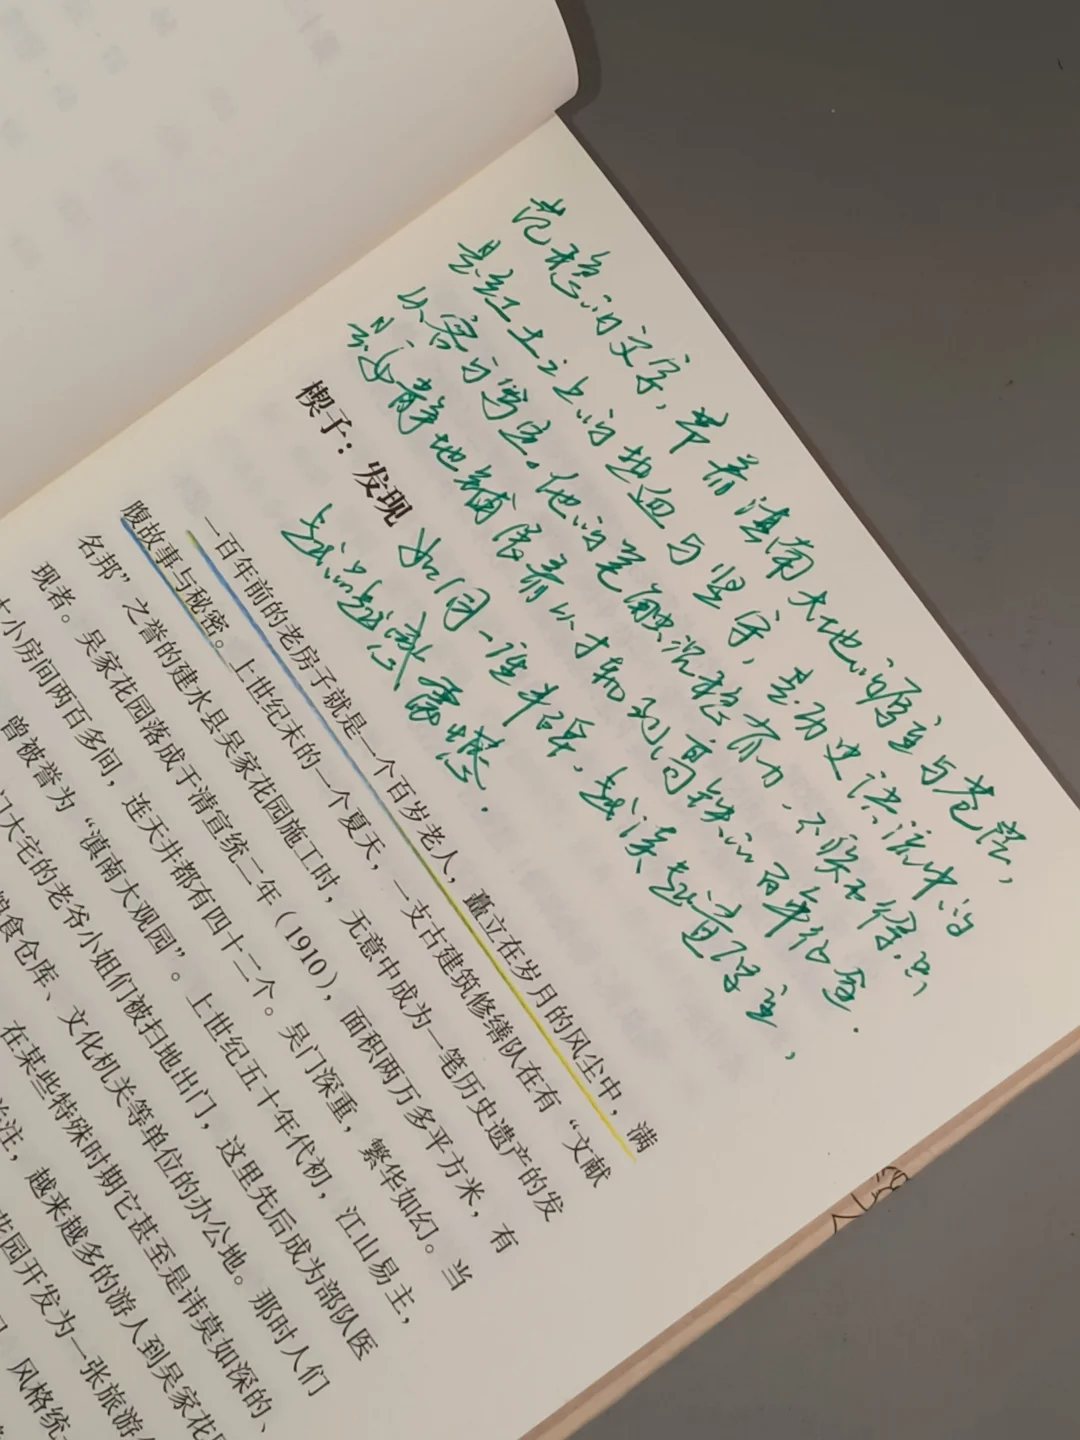 范稳的文字，带着滇南大地的厚重与苍茫，
是红土之上的热血与坚守，是历史洪流中的
从容与笃定。他的笔触沉稳有力，不疾不徐，只
是安静地铺展着从寸轨到高铁的百年
楔子：发现
如同一 越读越 厚重，
越品越感震撼。
一百年前的老房子就是一个百岁老人，矗立在岁月的风尘中，满
腹故事与秘密。上世纪末的一个夏天，一支古建筑修缮队在有“文献
名邦”之誉的建水县吴家花园施工时，无意中成为一笔历史遗产的发
现者。吴家花园落成于清宣统二年（1910），面积两万多平方米，有
大小房间两百多间，连天井都有四十二个。吴门深重，繁华如幻。当
曾被誉为“滇南大观园”。上世纪五十年代初，江山易主，
门大宅的老爷小姐们被扫地出门，这里先后成为部队医
粮食仓库、文化机关等单位的办公地。那时人们
在某些特殊时期它甚至是讳莫如深的、
关注，越来越多的游人到吴家花
花园开发为一张旅游
风格统